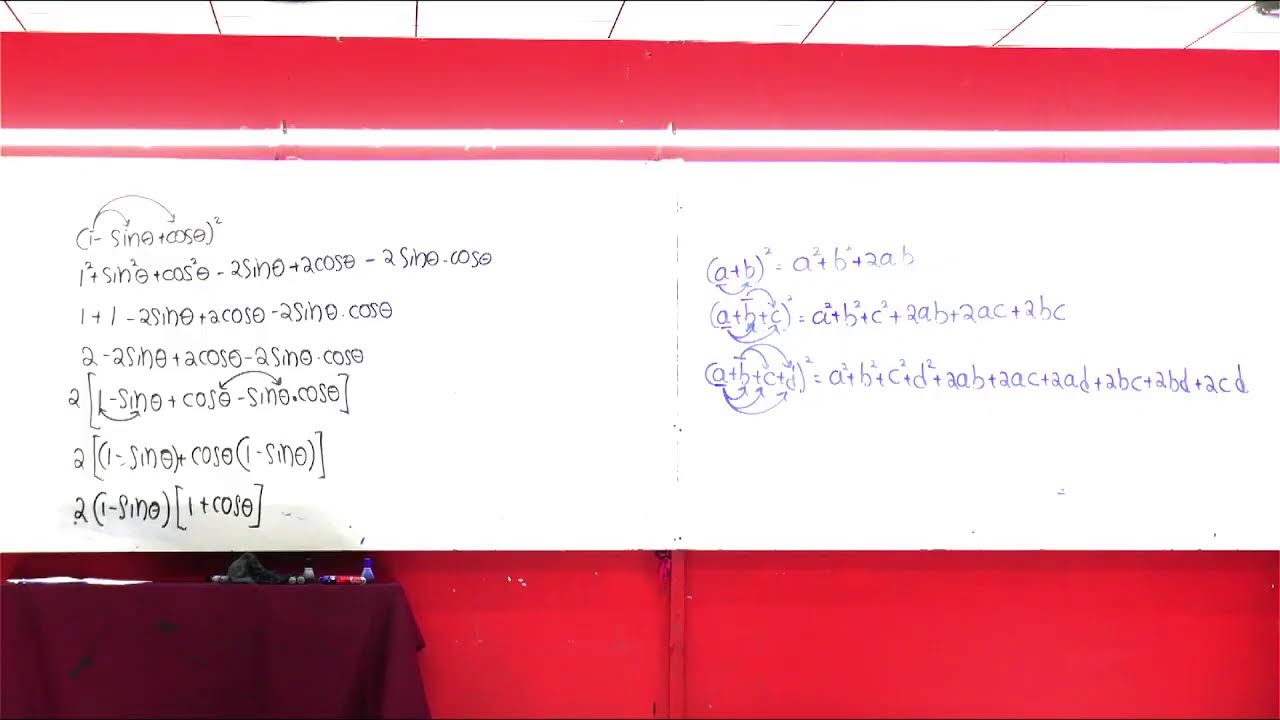 (1 - sinθ + cosθ)²
1² + sin²θ + cos²θ - 2sinθ + 2cosθ - 2sinθ·cosθ
1 + 1 - 2sinθ + 2cosθ - 2sinθ·cosθ
2 - 2sinθ + 2cosθ - 2sinθ·cosθ
2[1 - sinθ + cosθ - sinθ·cosθ]
2[(1 - sinθ) + cosθ(1 - sinθ)]
2(1 - sinθ)[1 + cosθ]
(a+b)² = a² + b² + 2ab
(a+b+c)² = a² + b² + c² + 2ab + 2ac + 2bc
(a+b+c+d)² = a² + b² + c² + d² + 2ab + 2ac + 2ad + 2bc + 2bd + 2cd